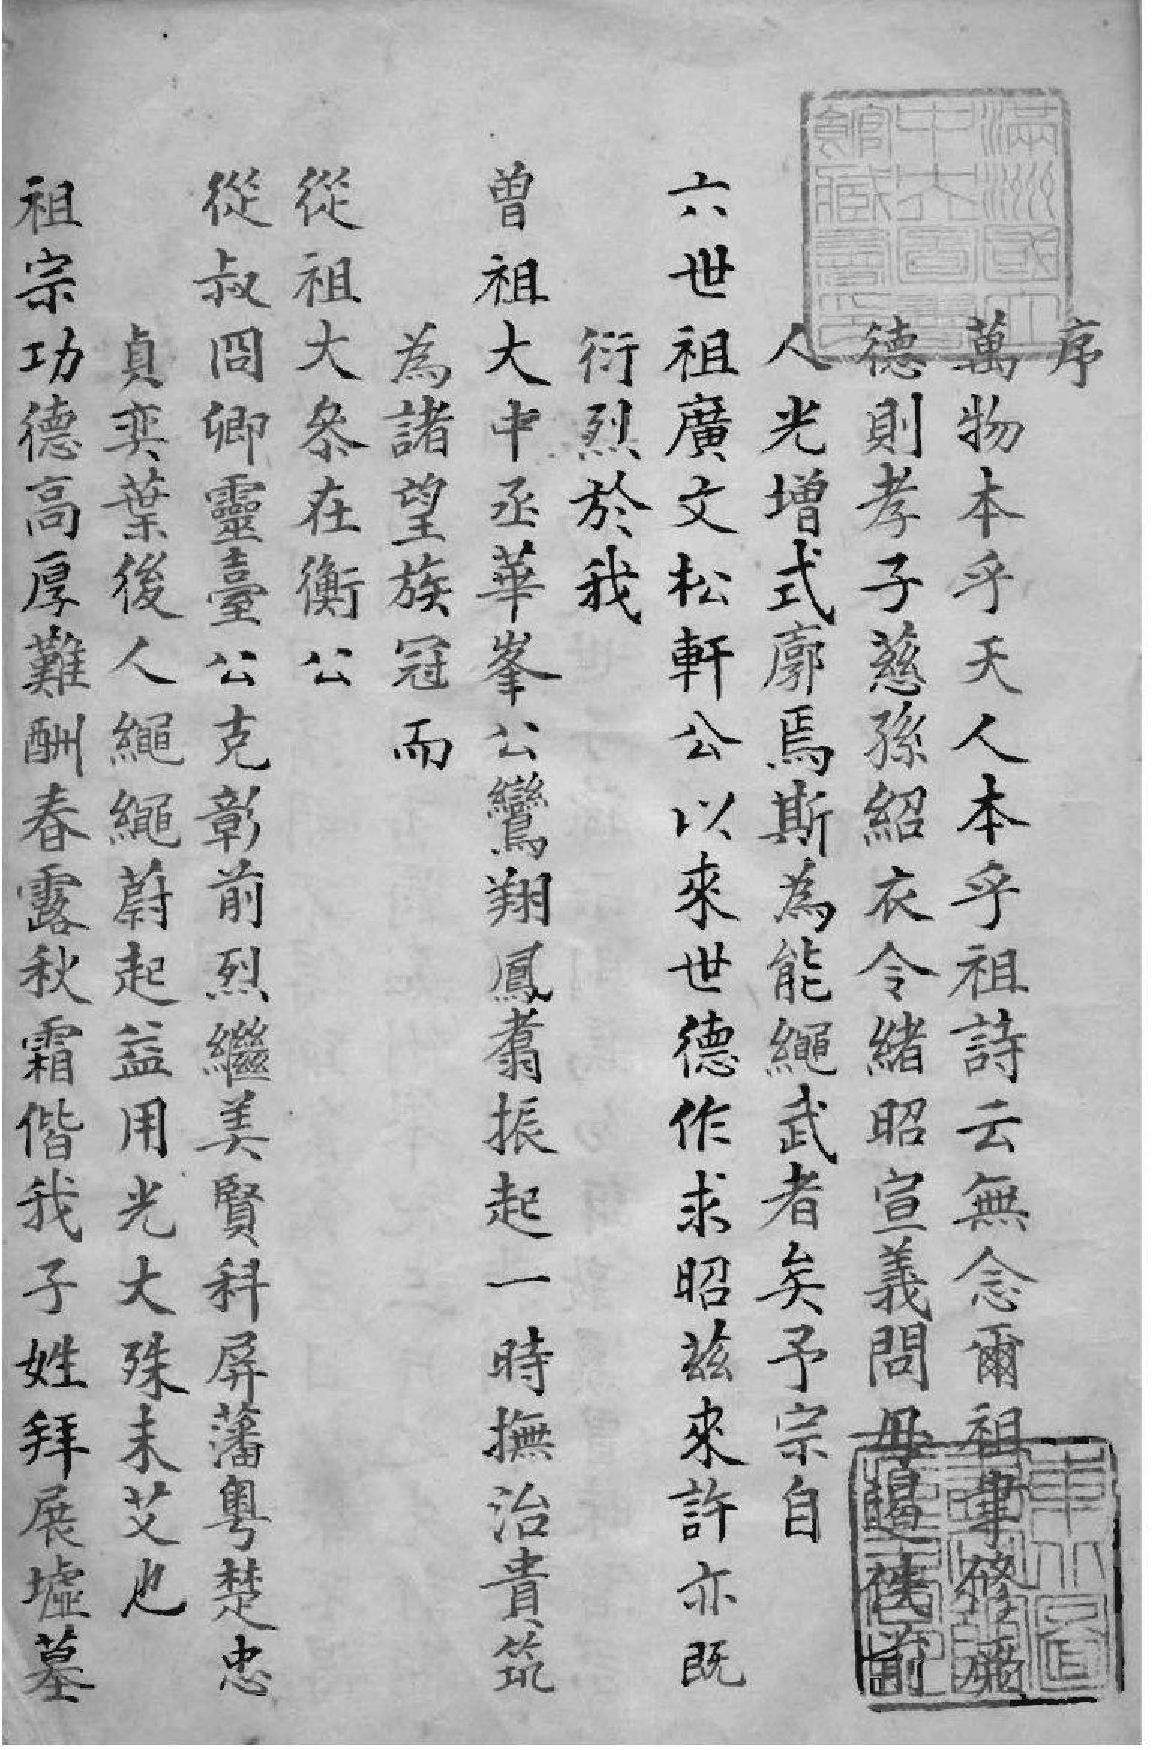 序
萬物本乎天人本乎祖詩云無念爾祖聿修厥
德則孝子慈孫紹衣令緒昭宣義問毋遏佚前
人光增式廓焉斯為能繩武者矣予宗自
六世祖廣文松軒公以來世德作求昭茲來許亦既
衍烈於我
曾祖大中丞華峯公鸞翔鳳翥振起一時撫治貴筑
為諸望族冠而
從祖大叅在衡公
從叔冏卿靈臺公克彰前烈繼美賢科屏藩粵楚忠
貞奕葉後人繩繩蔚起益用光大殊未艾也
祖宗功德高厚難酬春露秋霜偕我子姓拜展墟墓
滿洲國立
中央圖書
館藏書印